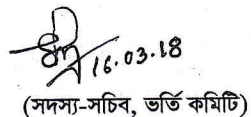 16.03.18
(সদস্য-সচিব, ভর্তি কমিটি)